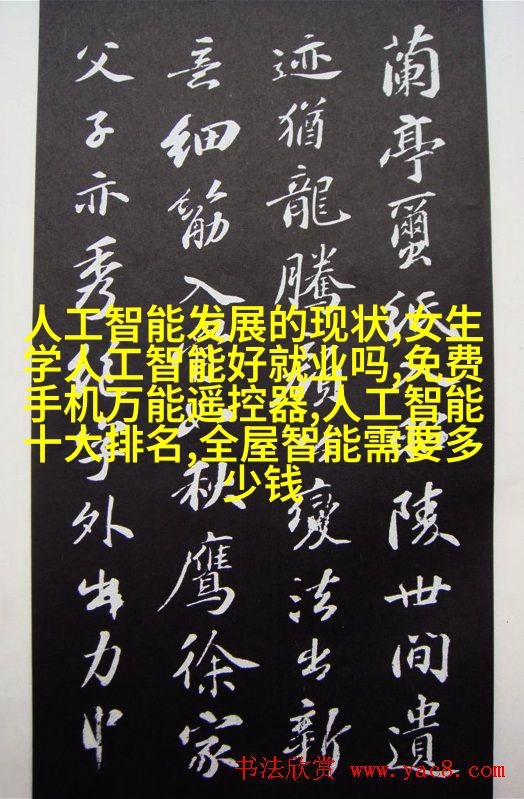 蘭亭蠒紙陵世間遺
迹猶龍騰變法出新
意細筋入秋鷹徐家
父子亦秀絕字外出力中
人工智能发展的现状,女生
学人工智能好就业吗,免费
手机万能遥控器,人工智能
十大排名,全屋智能需要多
少钱
书法欣赏 www.yac8.com